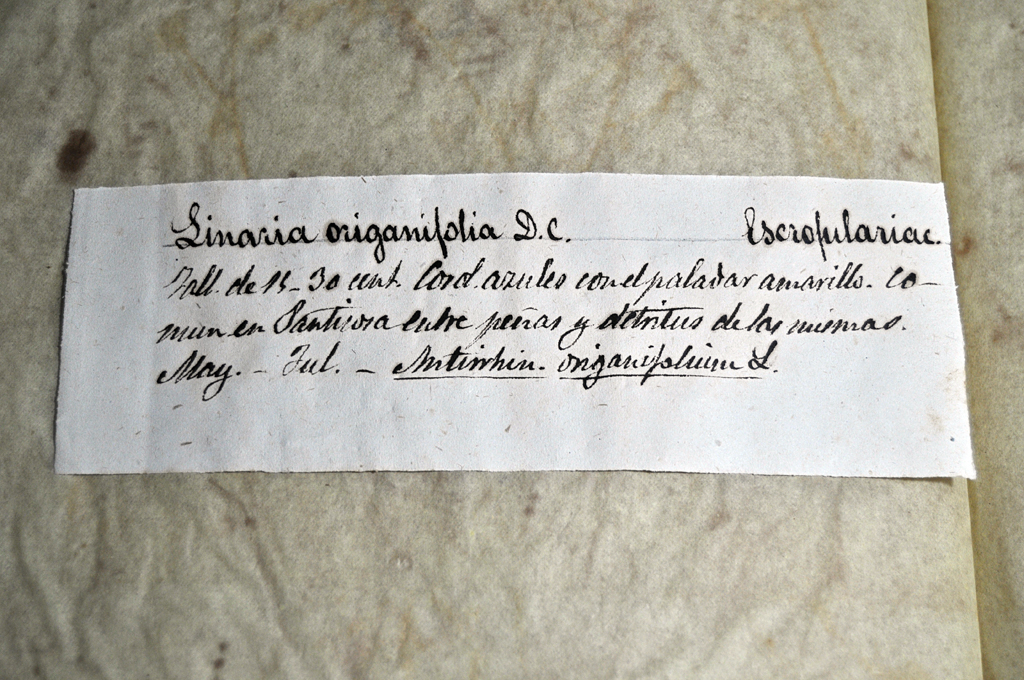 Linaria origanifolia D.C. Escrofulariac.
Tall. de 15-30 cent. Corol. azules con el paladar amarillo. Co-
mun en Panticosa entre peñas y detritus de las mismas.
May. - Jul. - Antirrhin. origanifolium L.